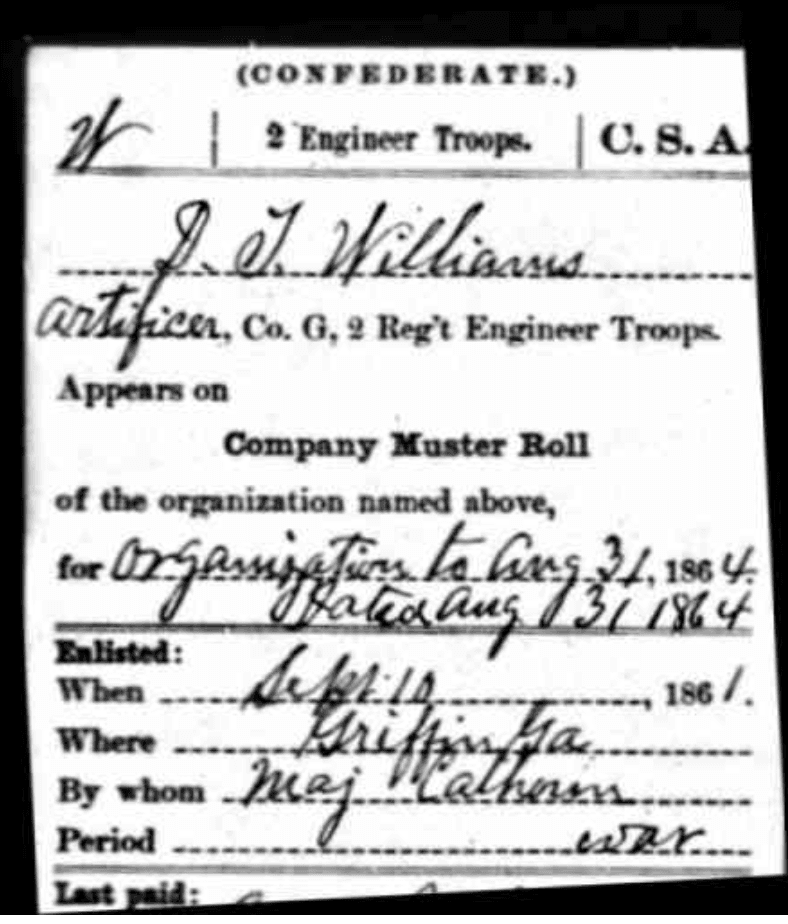 (CONFEDERATE.)
W | 2 Engineer Troops. | C. S. A.
D. T. Williams
Artificer, Co. G, 2 Reg't Engineer Troops.
Appears on
Company Muster Roll
of the organization named above,
for Organization to Aug 31, 1864.
Dated Aug 31 1864
Enlisted:
When Sept 10, 1861.
Where Griffin Ga
By whom Maj Calhoun
Period war
Last paid: